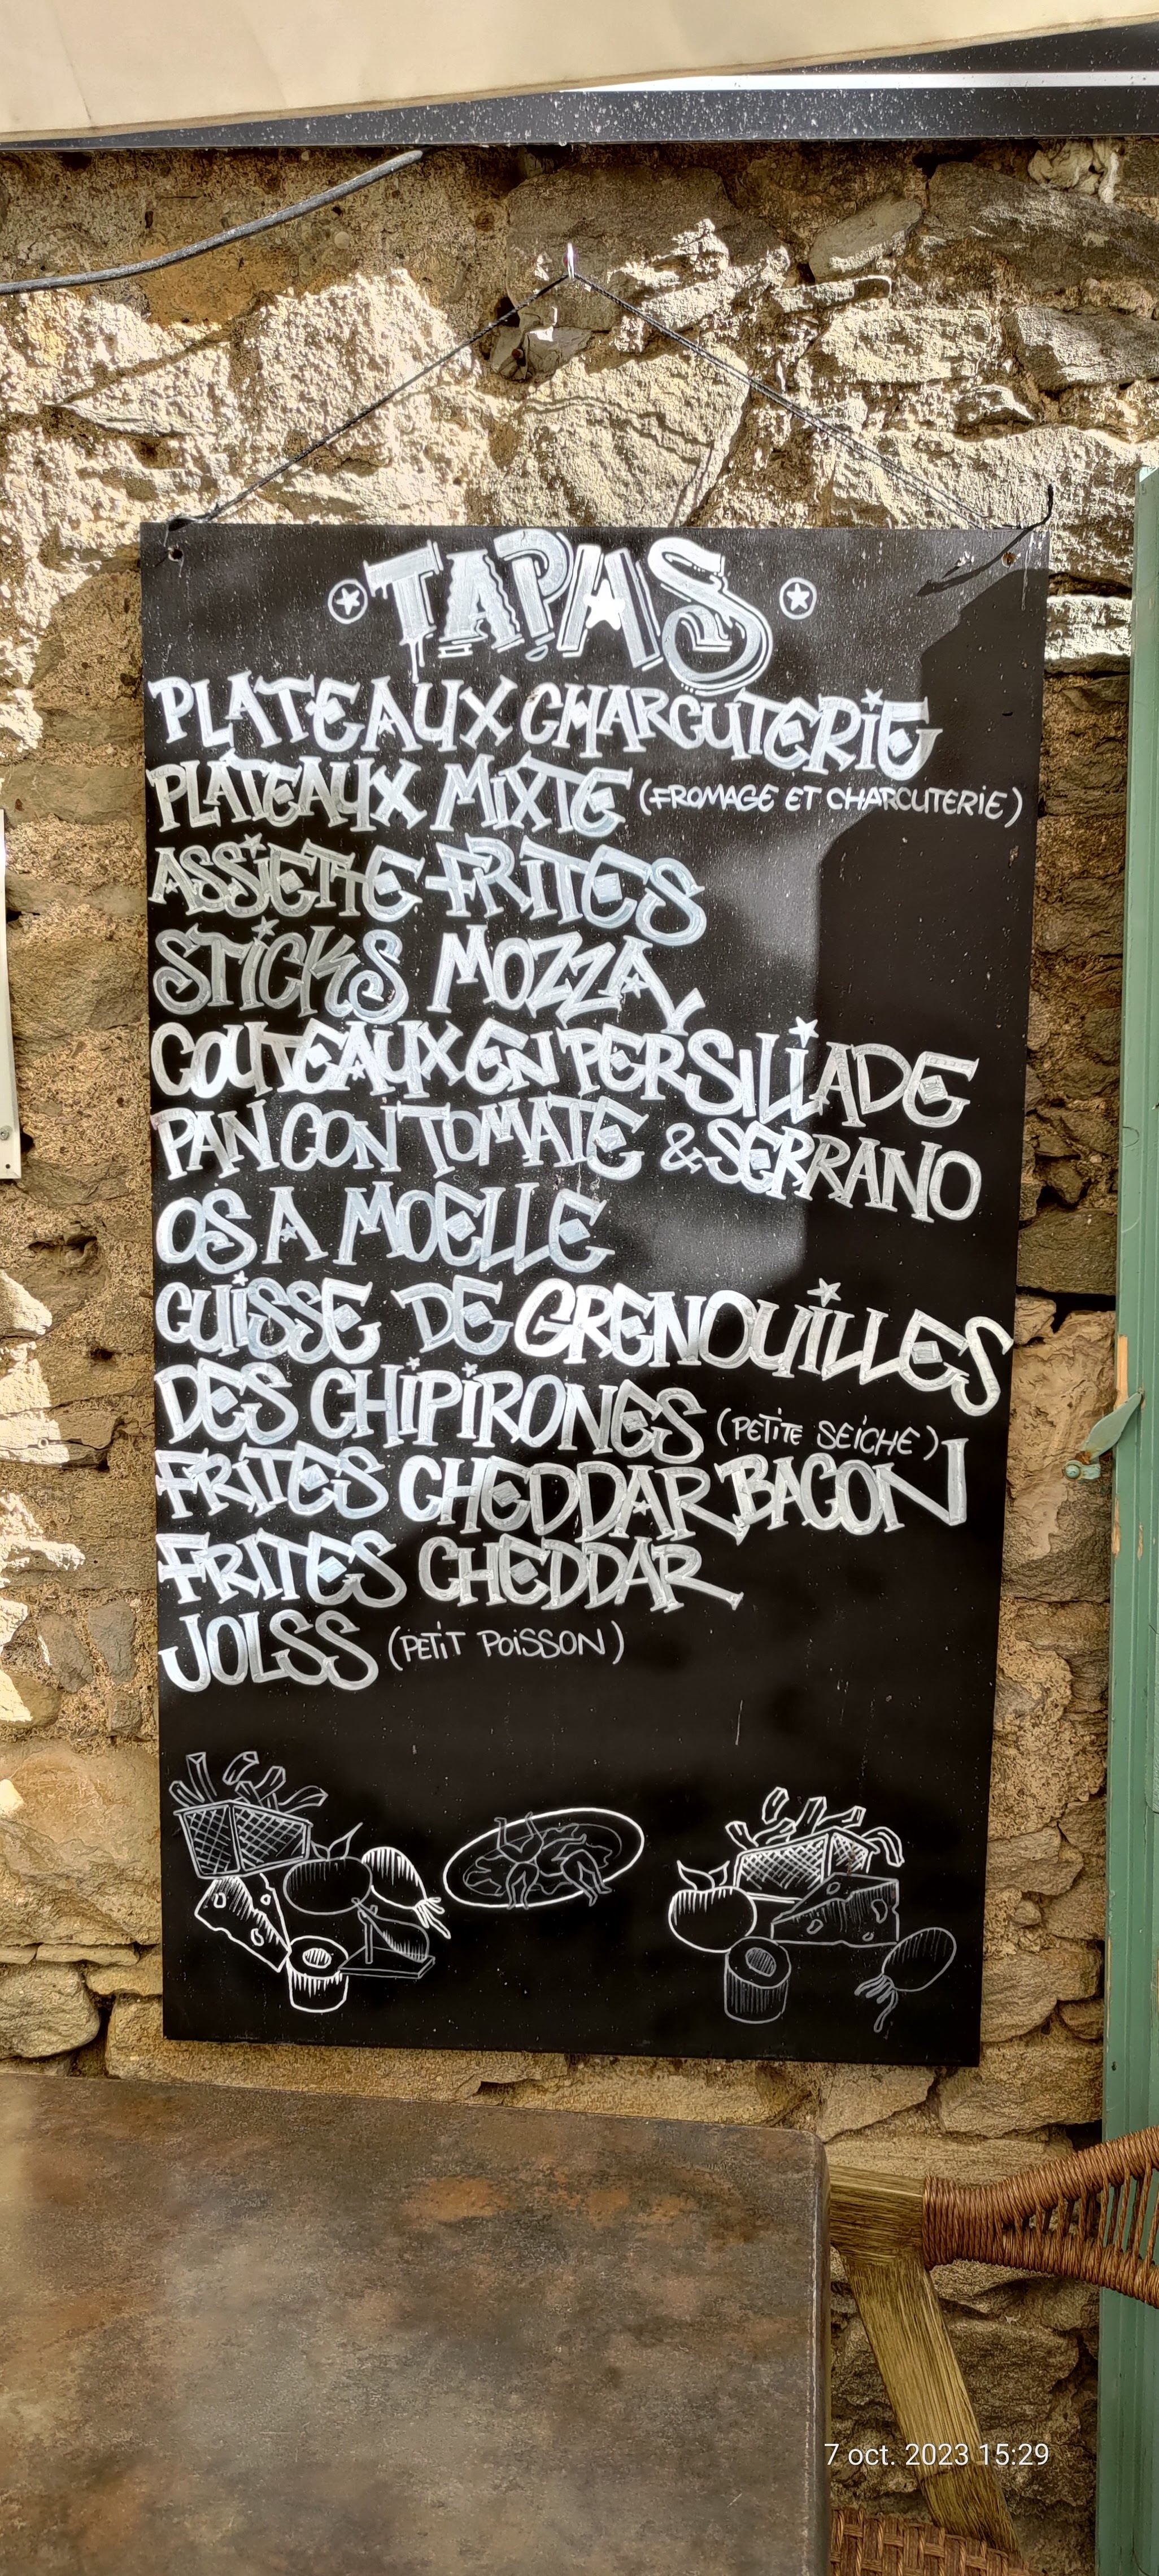 TAPAS
PLATEAUX CHARCUTERIE
PLATEAUX MIXTE (FROMAGE ET CHARCUTERIE)
ASSIETTE FRITES
STICKS MOZZA
COUTEAUX EN PERSILLIADE
PAN CON TOMATE & SERRANO
OS A MOELLE
CUISSE DE GRENOUILLES
DES CHIPIRONES (PETITE SEICHE)
FRITES CHEDDAR BACON
FRITES CHEDDAR
JOLSS (PETIT POISSON)
7 oct. 2023 15:29